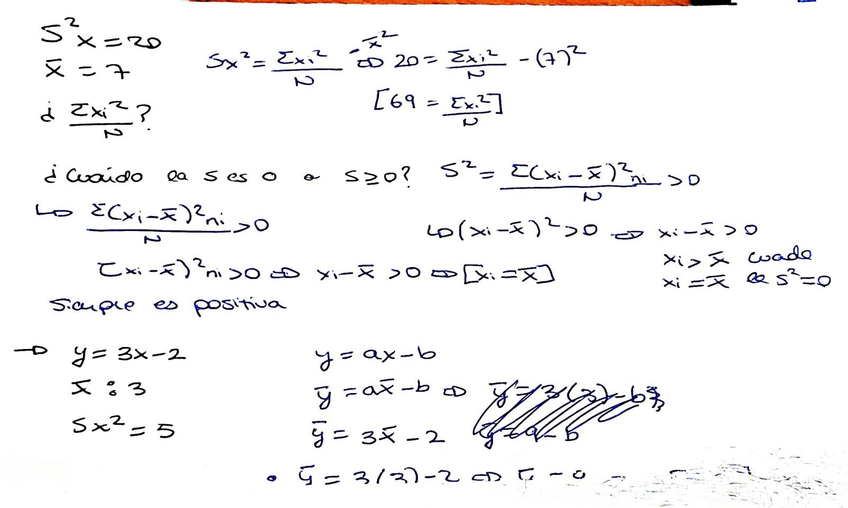 S²x = 20
x̄ = 7
¿ Σxi²/N ?
Sx² = Σxi²/N - x̄² ⇔ 20 = Σxi²/N - (7)²
[69 = Σxi²/N]
¿Cuándo la S es 0 o S ≥ 0? S² = Σ(xi - x̄)²ni/N > 0
↳ Σ(xi - x̄)²ni/N > 0
↳ (xi - x̄)² > 0 ⇔ xi - x̄ > 0
xi > x̄ cuado
xi = x̄ la S² = 0
Σ(xi - x̄)²ni > 0 ⇔ xi - x̄ > 0 ⇔ [xi = x̄]
Siempre es positiva
→ y = 3x - 2
x̄ : 3
Sx² = 5
y = ax - b
ȳ = ax̄ - b ⇔
ȳ = 3x̄ - 2
• ȳ = 3(3) - 2 ⇔